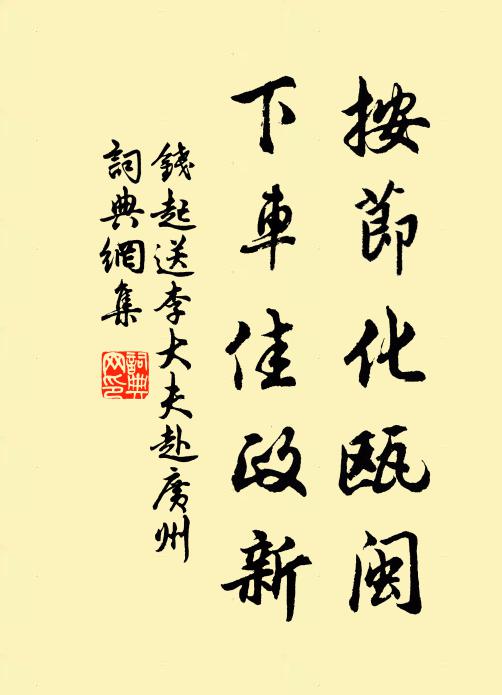 按節化甌閩
下車佳政新
錢起送李大夫赴廣州
詞典網集
詞典
网印